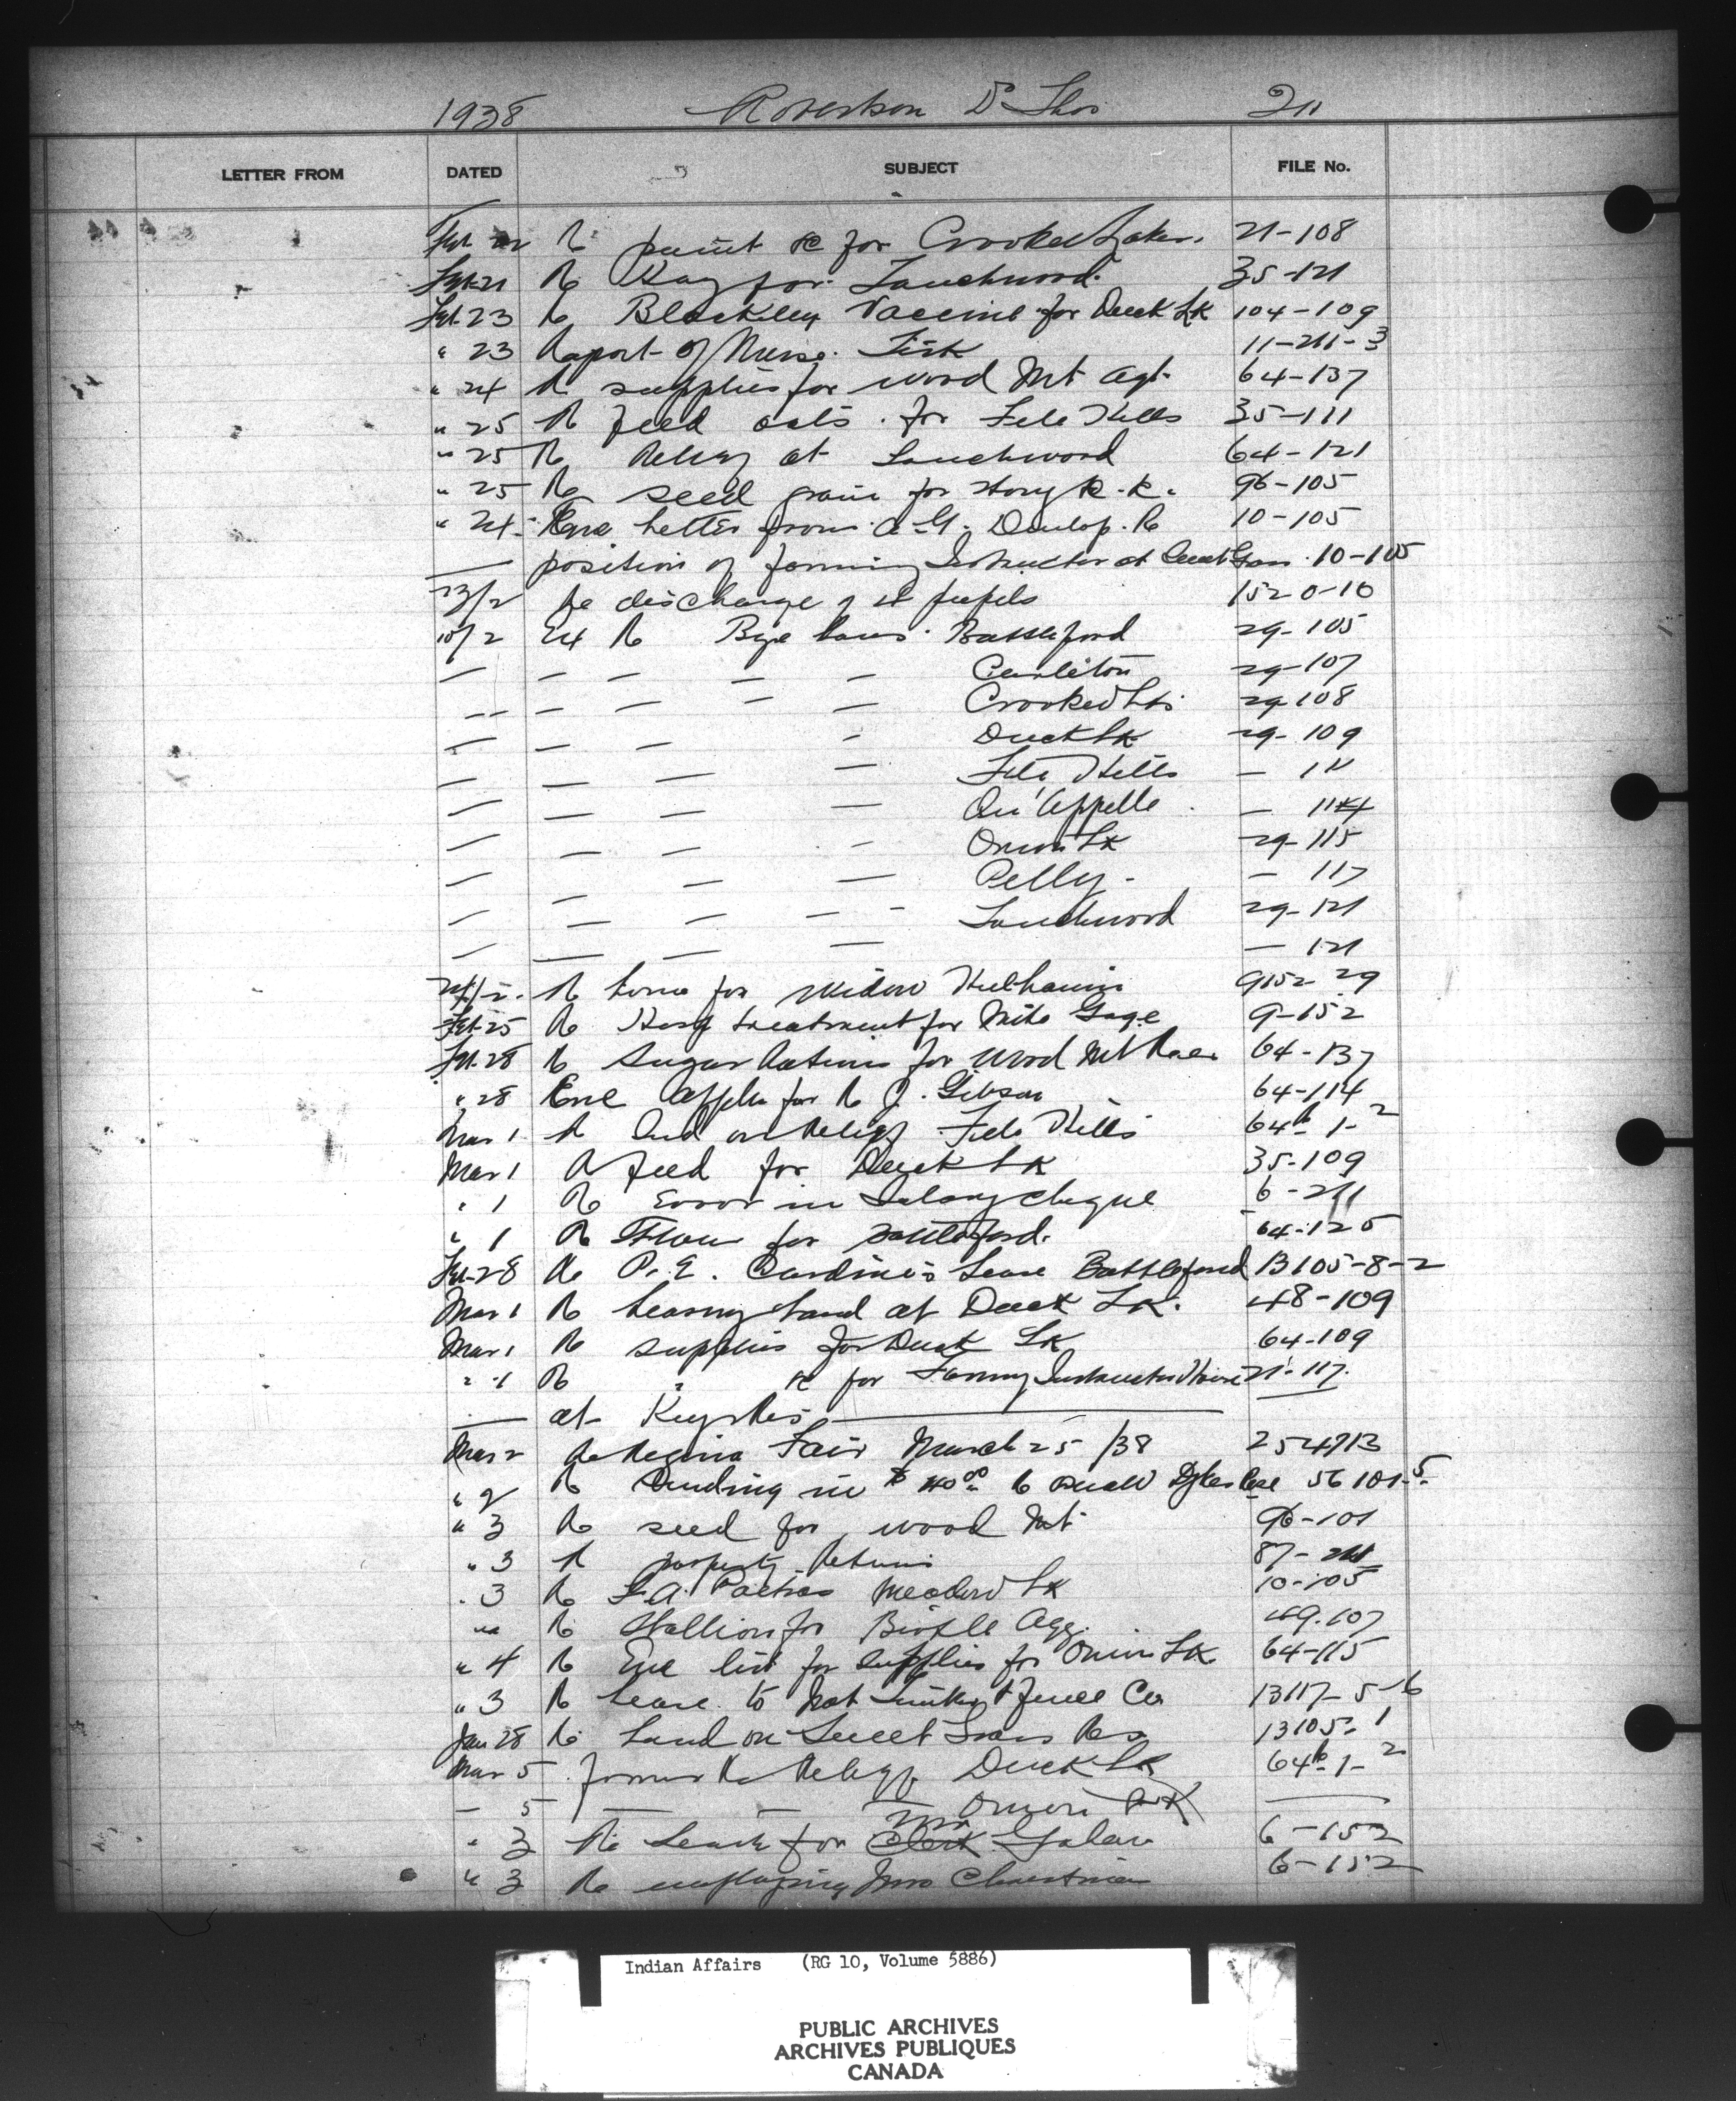 1938 Robertson Dr Thos 211
LETTER FROM DATED SUBJECT FILE No.
Feb 22 R paint &c for Crooked Lakes. 21-108
Feb 21 Re Hay for Touchwood. 35-121
Feb 23 Re Blackleg Vaccine for Duck Lk 104-109
" 23 Report of Nurse 11-211-3
" 24 R supplies for Wood Mt Agt. 64-137
" 25 R feed oats for File Hills 35-111
" 25 Re Relief at Touchwood 64-121
" 25 Re seed grain for R.R. 96-105
" 24 Enc letter from A.G. Dunlop. Re 10-105
— position of farming Instructor at Sweet Grass 10-105
23/2 Re discharge of pupils 1520-10
10/2 R Bye laws Battleford 29-105
— — — — — Carleton 29-107
— — — — — Crooked Lks 29-108
— — — — Duck Lk 29-109
— — — — File Hills — 111
— — — — Qu'Appelle — 114
— — — — Onion Lk 29-115
— — — — Pelly — 117
— — — — — Touchwood 29-121
— — — — — 121
R home for Widow 9152-29
Feb 25 Re Hosp treatment for Gage 9-152
Feb. 28 R Sugar Rations for Wood Mt 64-137
" 28 Enc Applen for R J. Gibson 64-114
Mar 1 R Relief File Hills 64-1-2
Mar 1 R feed for Duck Lk 35-109
" 1 Re Error in Salary cheque 6-211
" 1 Re Flour for Battleford. 64-125
Feb-28 Re P. E. Lease Battleford 13105-8-2
Mar 1 R leasing land at Duck Lk. 48-109
Mar 1 R supplies for Duck Lk 64-109
" 1 Re " &c for Farming Instructor House 21-117.
— at Key Res —
Mar 2 Re Regina Fair March 25/38 254713
" 2 R Sending in $40.00 56101-5
" 3 Re seed for Wood Mt 96-101
" 3 R property Returns 87-211
" 3 Re Meadow Lk 10-105
R Stallion for Agy. 49.107
" 4 R Enc list for supplies for Onion Lk. 64-115
" 3 R Lease to Nat & Fence Co 13117-5-6
Jan 28 Re Land on Sweet Grass Res 13105-1
Mar 5 Relief Duck Lk 64-1-2
— 5 — — — Onion Lk —
" 3 Re Leave for Mr Clerk 6-152
" 3 Re employing Mrs 6-152
Indian Affairs (RG 10, Volume 5886)
PUBLIC ARCHIVES
ARCHIVES PUBLIQUES
CANADA